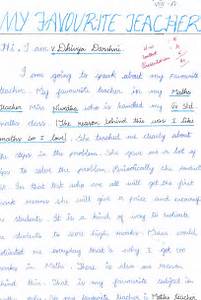 VIII - A
MY FAVOURITE TEACHER
Hi, I am V. Dhivya Darshni.
I am going to speak about my favourite
teacher. My favourite teacher in my Maths
Teacher Miss Nivedha who is handled my VI Std
maths class (The reason behind this was I like
maths so I love). She teached me clearly about
the steps in the problem. She gave me a lot of
to solve the problem. Periodically she conduct
test. In that test who are all will get the first
rank means she will give a prize and encourage
students. It is a kind of way to motivate
students to score high marks. Maam could
motivated me everyday that's why I got too
marks in Maths. There is also an reason
behind this. Maths is my favourite subject in
My favourite teacher is Maths teacher,